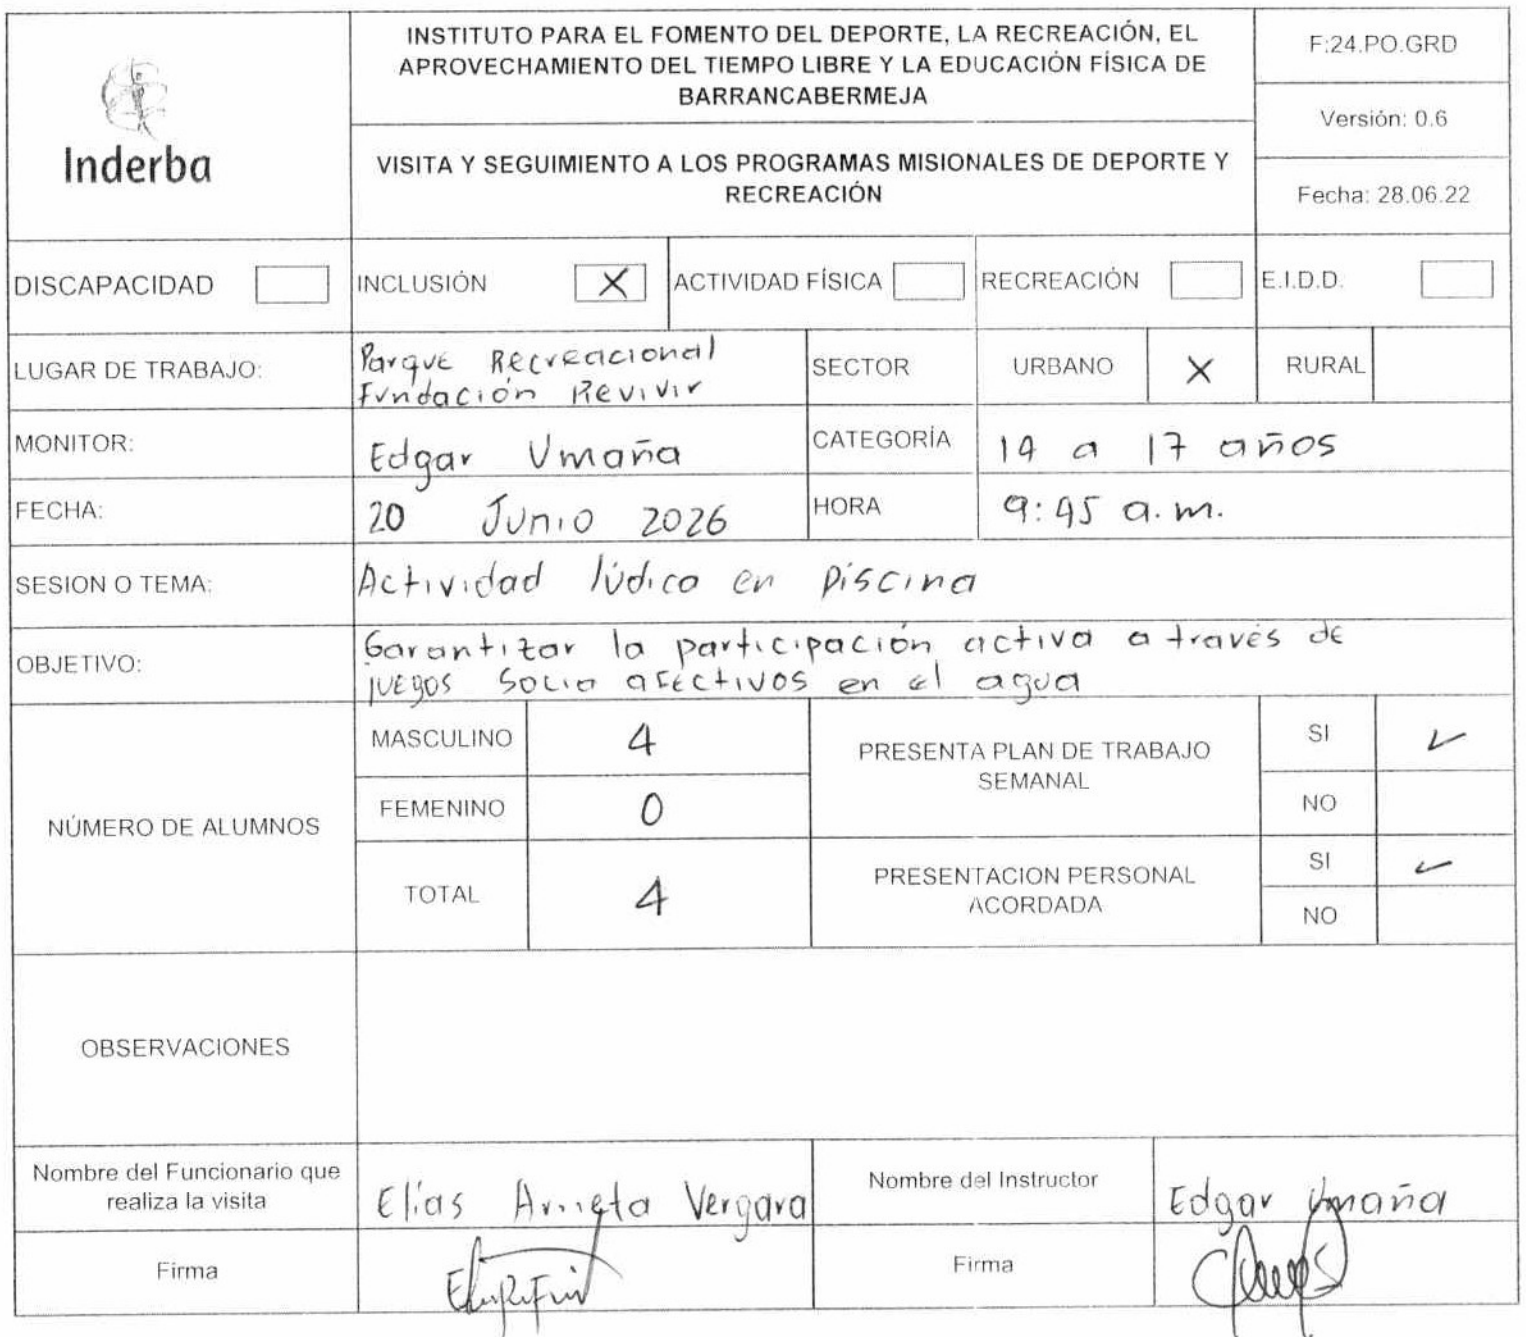 Inderba
INSTITUTO PARA EL FOMENTO DEL DEPORTE, LA RECREACIÓN, EL
APROVECHAMIENTO DEL TIEMPO LIBRE Y LA EDUCACIÓN FÍSICA DE
BARRANCABERMEJA
VISITA Y SEGUIMIENTO A LOS PROGRAMAS MISIONALES DE DEPORTE Y
RECREACIÓN
F:24.PO.GRD
Versión: 0.6
Fecha: 28.06.22
DISCAPACIDAD INCLUSIÓN X ACTIVIDAD FÍSICA RECREACIÓN E.I.D.D.
LUGAR DE TRABAJO: Parque Recreacional
Fundación Revivir
SECTOR URBANO X RURAL
MONITOR: Edgar Umaña CATEGORÍA 14 a 17 años
FECHA: 20 Junio 2026 HORA 9:45 a.m.
SESION O TEMA: Actividad lúdica en piscina
OBJETIVO: Garantizar la participación activa a través de
juegos socio afectivos en el agua
NÚMERO DE ALUMNOS
MASCULINO 4
FEMENINO 0
TOTAL 4
PRESENTA PLAN DE TRABAJO
SEMANAL
SI ✓
NO
PRESENTACION PERSONAL
ACORDADA
SI ✓
NO
OBSERVACIONES
Nombre del Funcionario que
realiza la visita
Elías Arrieta Vergara
Nombre del Instructor
Edgar Umaña
Firma
Firma